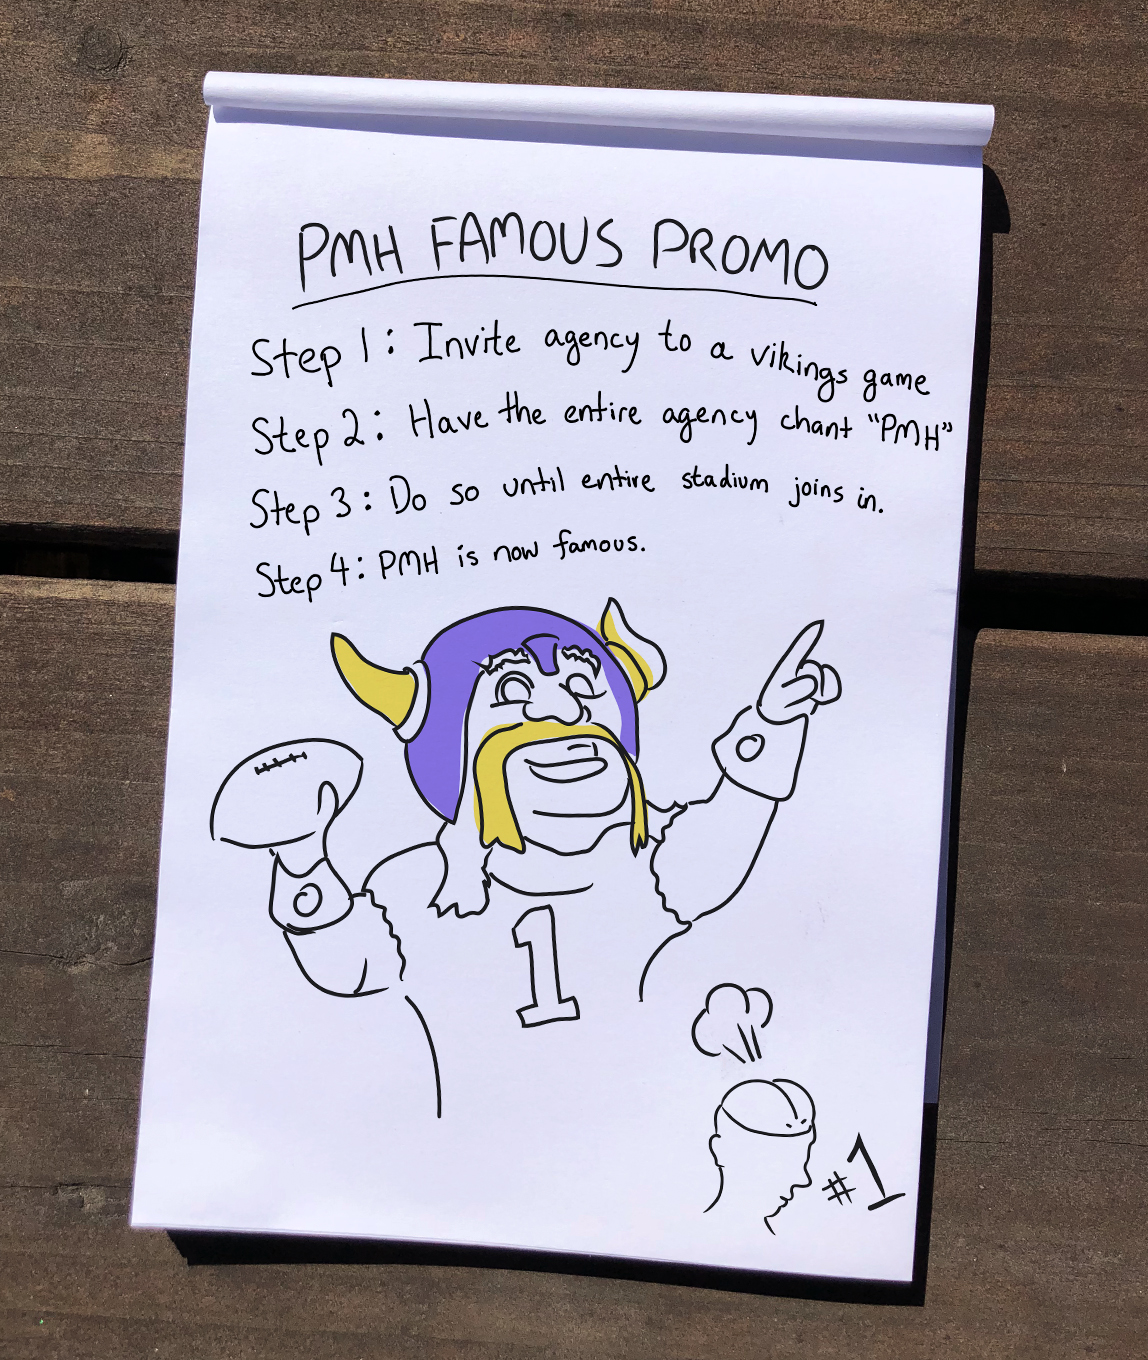 PMH FAMOUS PROMO
Step 1: Invite agency to a vikings game
Step 2: Have the entire agency chant "PMH"
Step 3: Do so until entire stadium joins in.
Step 4: PMH is now famous.
1
#1